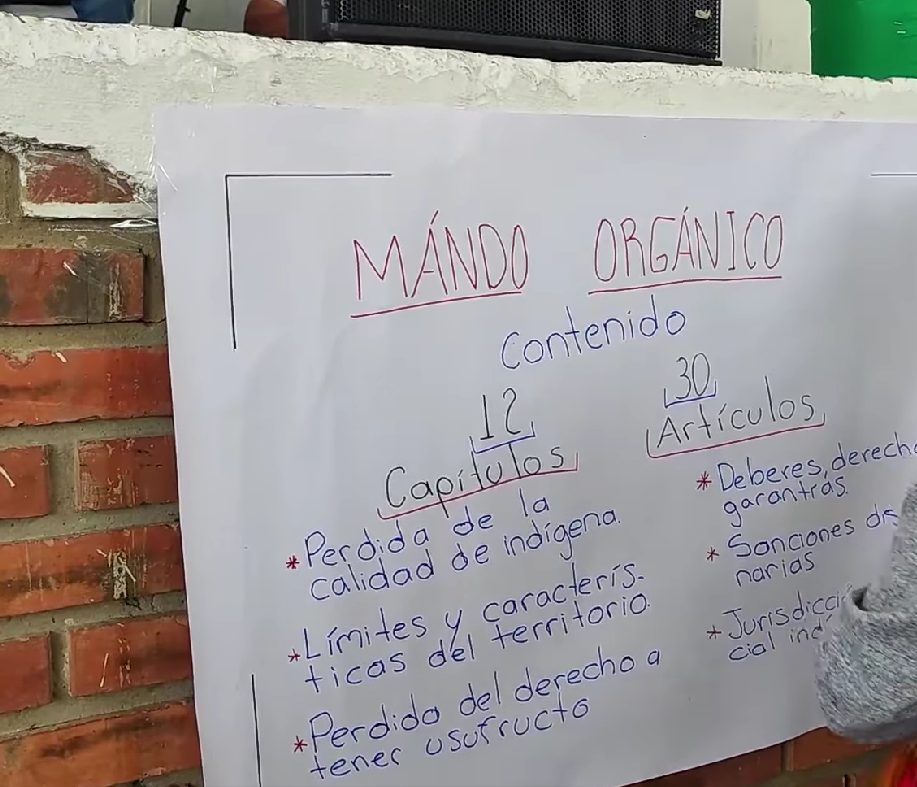 MÁNDO ORGÁNICO
Contenido
12
Capítulos
* Perdida de la
calidad de indígena.
* Límites y caracterís-
ticas del territorio.
* Perdida del derecho a
tener usufructo
30
Artículos
* Deberes, derech
garantías.
* Sanciones dis
narias
* Jurisdicci
cial ind